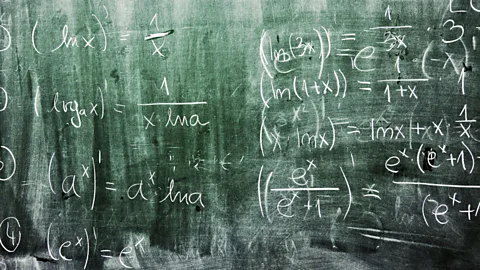 (ln x)' = 1/x
(log_a x)' = 1/(x ln a)
(a^x)' = a^x ln a
4 (e^x)' = e^x
(ln(3x))' = 1/3x · 3
(ln(1+x))' = 1/(1+x)
(x ln x)' = ln x + x 1/x
(e^x/(e^x+1))' = e^x·(e^x+1)/(e^x+1